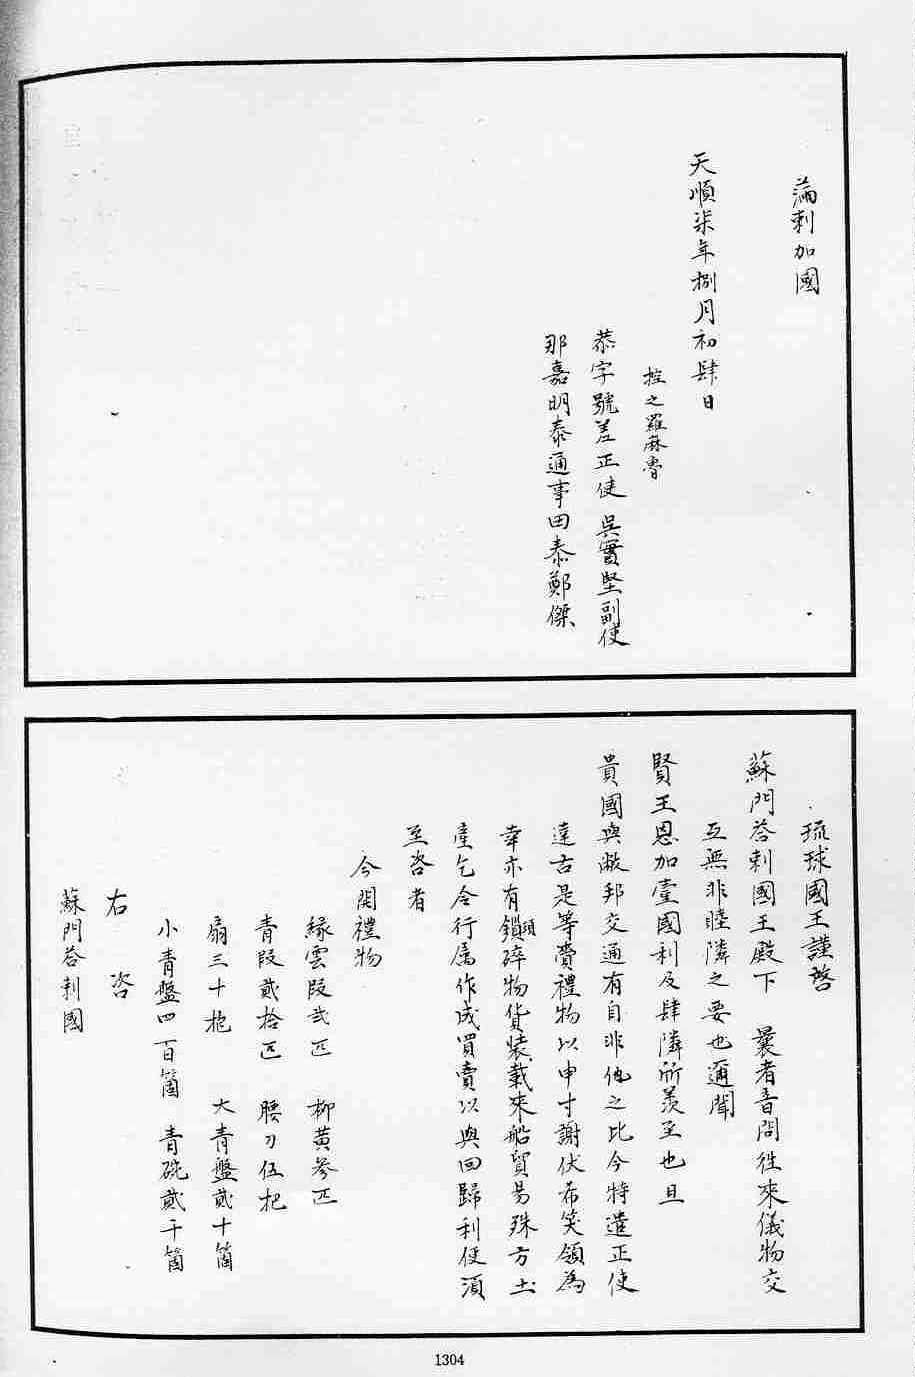 滿剌加國
天順柒年捌月初肆日
控之羅麻魯
恭字號差正使 吳實堅副使
那嘉明泰通事田泰鄭傑
琉球國王謹啓
蘇門荅剌國王殿下 曩者音問徃來儀物交
互無非睦隣之要也邇聞
賢王恩加壹國利及肆隣所羨至也且
貴國與敝邦交通有自非他之比今特遣正使
達古是等賫禮物以申寸謝伏希笑領為
幸亦有鎖碎物貨装載來船貿易殊方土
産乞令行属作成買賣以與回歸利便湏
至咨者
今開禮物
緑雲段弐匹 柳黄參匹
青段貳拾匹 腰刀伍把
扇三十抱 大青盤貳十箇
小青盤四百箇 青碗貳千箇
右 咨
蘇門荅剌國
1304